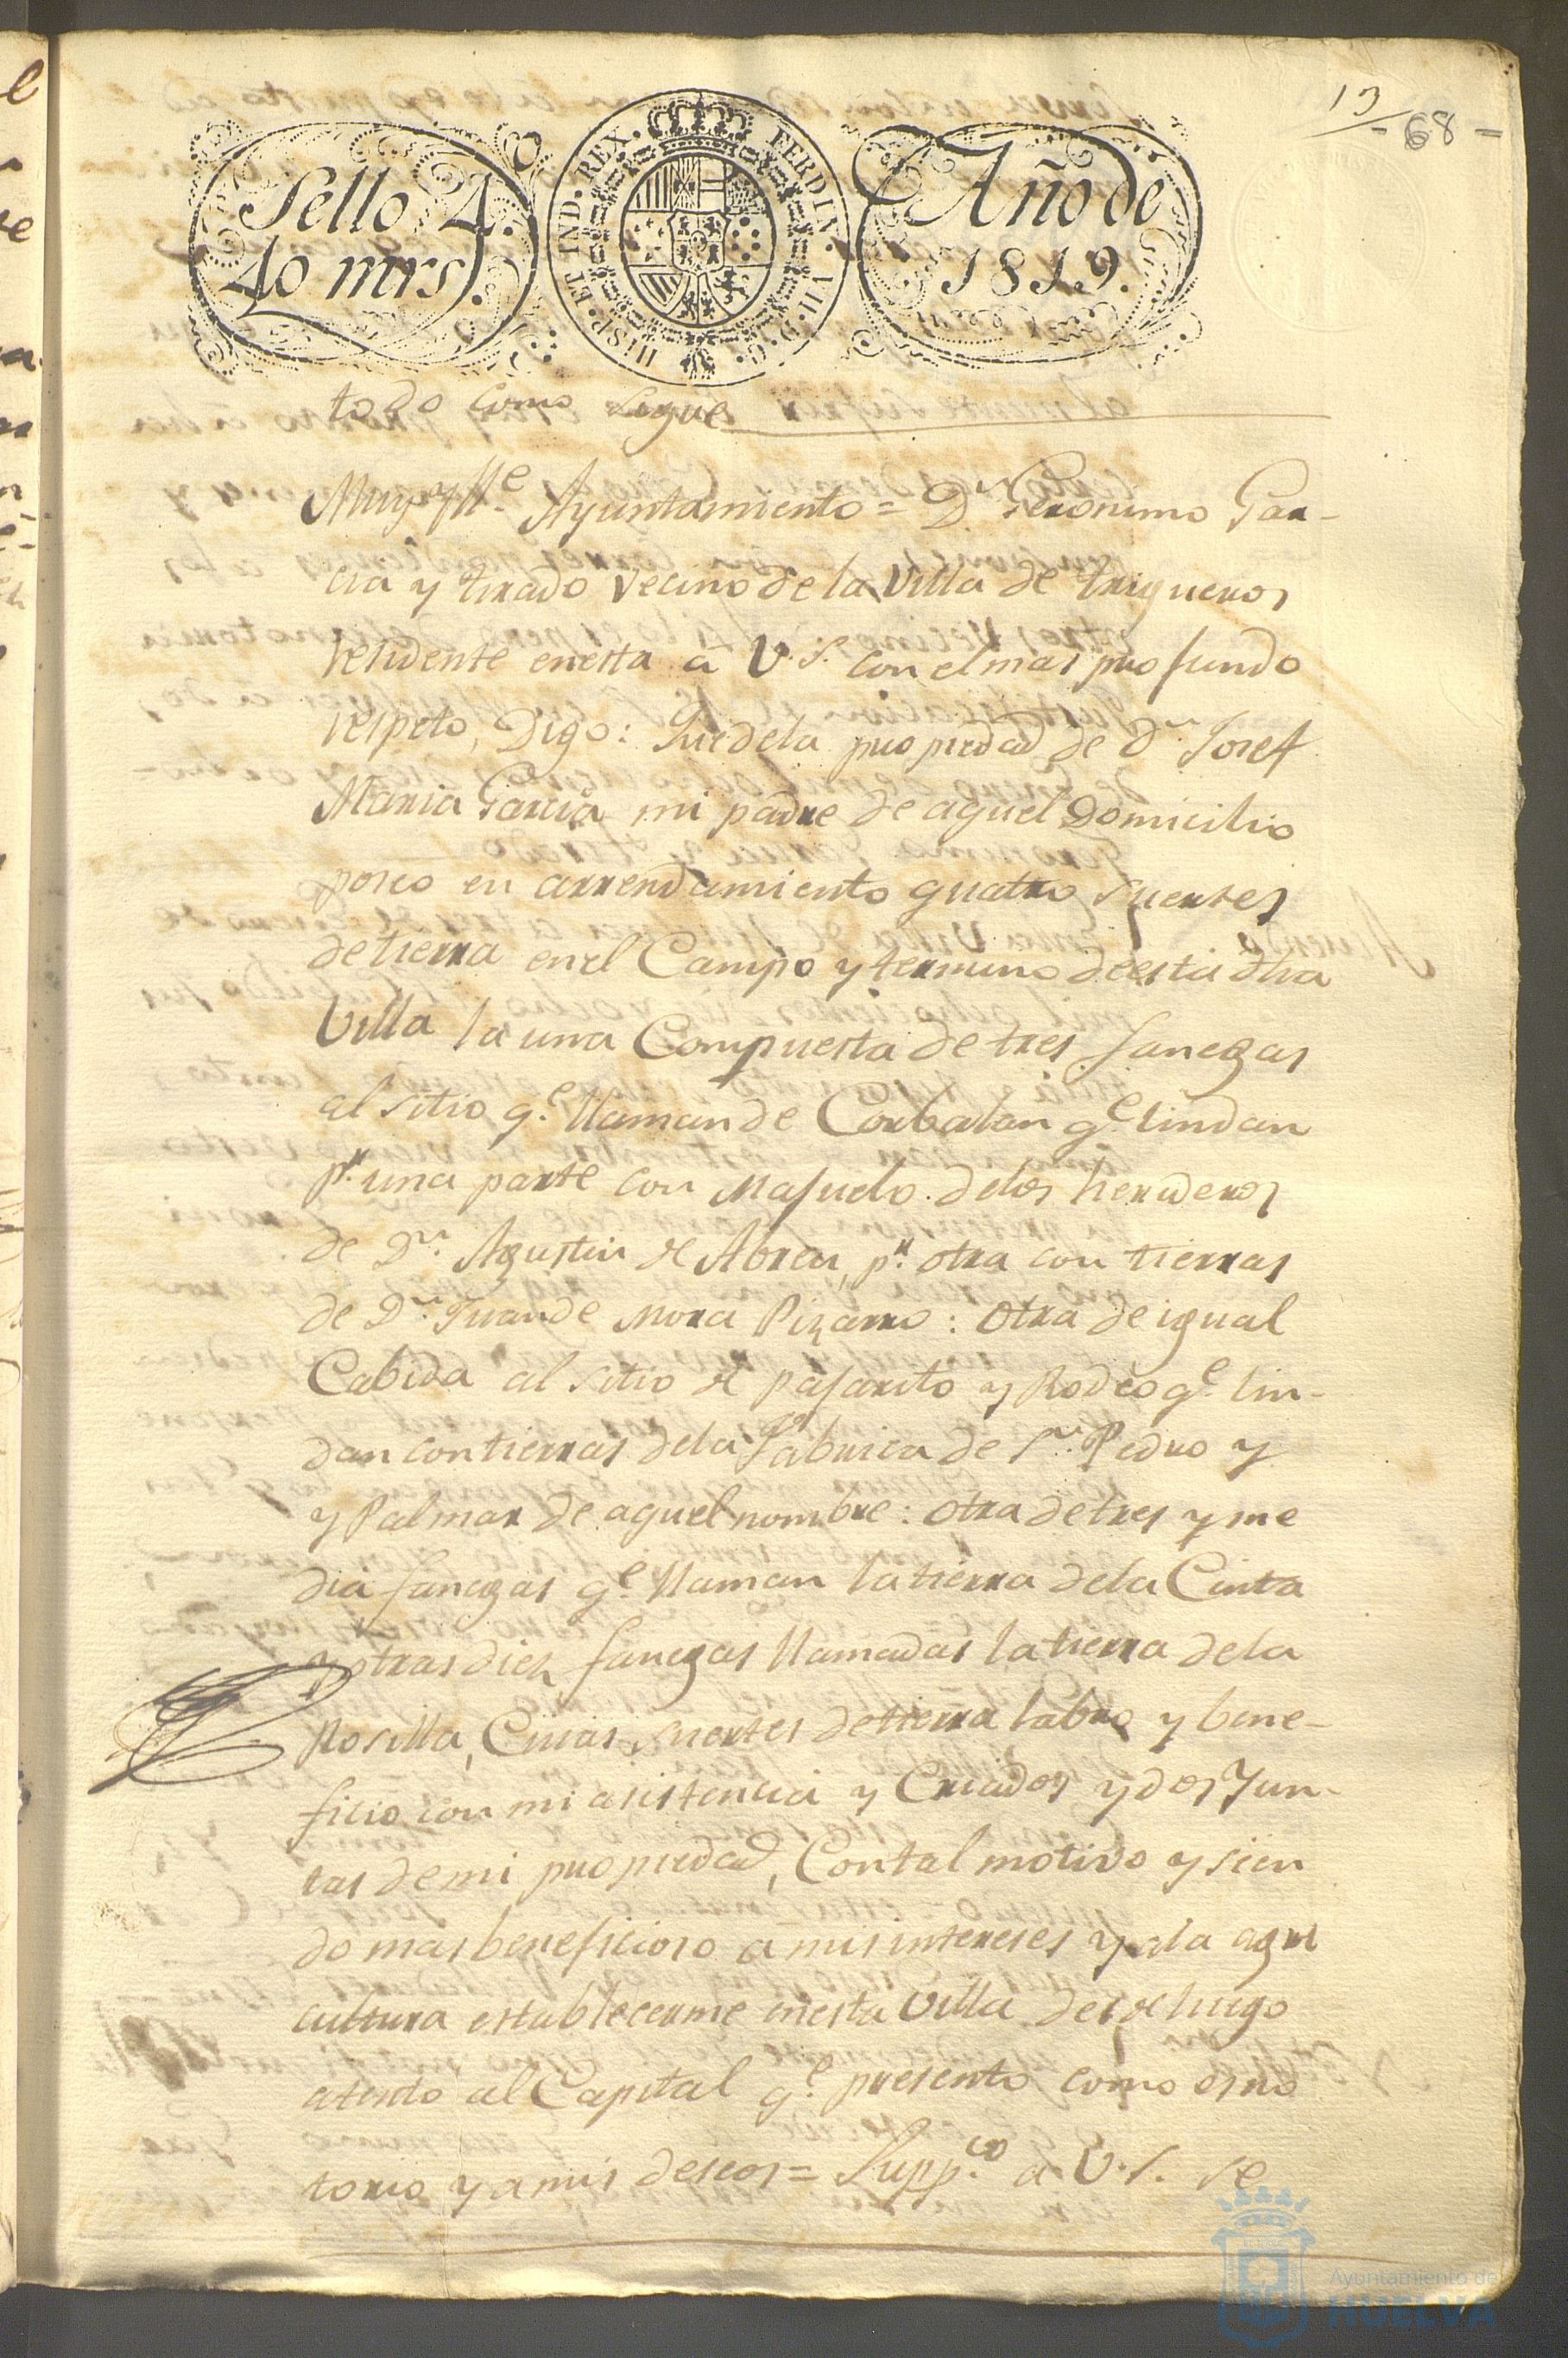 13
- 68 -
Sello 4.
40 mrs.
HISP. ET IND. REX. FERDIN. VII. D. G.
Año de
1819.
todo como sigue
Muy Ylle. Ayuntamiento = Dn. Geronimo Gar-
cia y tirado Vecino de la Villa de trigueros
residente enesta a V.S. con el mas profundo
respeto, Digo: Que dela propiedad de Dn. Josef
Maria Garcia mi padre de aquel Domicilio
poseo en arrendamiento quatro suertes
de tierra enel Campo y termino deesta dha
Villa la una Compuesta de tres fanegas
al sitio qe. llaman de Corbalan qe. lindan
pr. una parte con Majuelo delos herederos
de Dn. Agustin de Abreu, pr. otra con tierras
de Dn. Juan de Mora Pizarro: Otra de igual
Cabida al sitio de pajarito y Rodeo qe. lin-
dan con tierras dela Fabrica de Sn. Pedro y
y Palmar de aquel nombre: otra de tres y me
dia fanegas qe. llaman la tierra dela Cinta
y otras diez fanegas llamadas la tierra dela
Rosilla, Cuias suertes de tierra labro y bene-
ficio con mi asistencia y Criados y dos Yun-
tas de mi propiedad, Con tal motivo y sien
do mas beneficioso a mis intereses y ala agri
cultura establecerme enesta Villa desde luego
atento al Capital qe. presento como es no
torio y a mis deseos = Suppco. a V.S. se
Ayuntamiento de
HUELVA